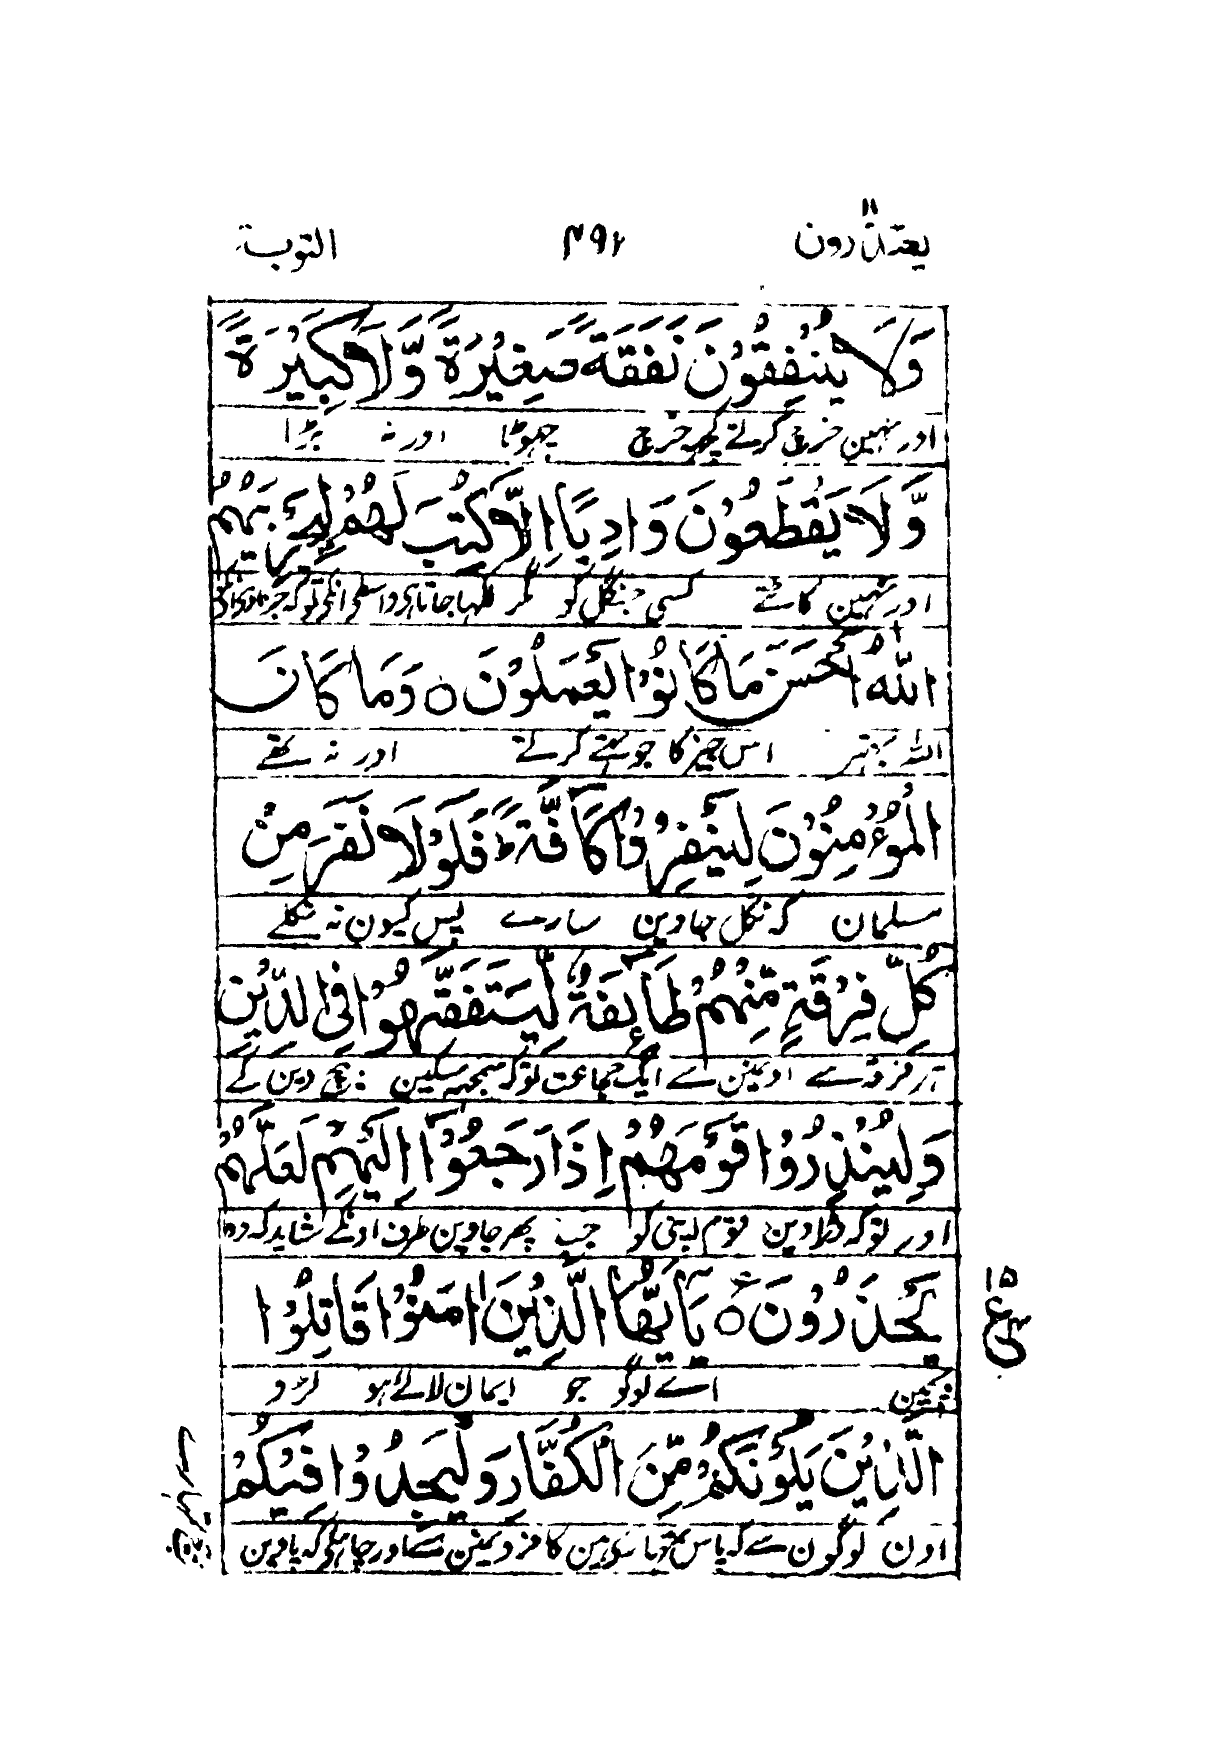 یعتذرون ۱۱ ۴۹۲ التوبة
وَلَا يُنْفِقُوْنَ نَفَقَةً صَغِيْرَةً وَّلَا كَبِيْرَةً
اور نہین خرچ کرتے کچھہ خرچ چھوٹا اور نہ بڑا
وَّلَا يَقْطَعُوْنَ وَادِيًا اِلَّا كُتِبَ لَهُمْ لِيَجْزِيَهُمُ
اور نہین کاٹتے کسی جنگل کو مگر لکہا جاتا ہی واسطی انکی توکہ
اللّٰهُ اَحْسَنَ مَا كَانُوْا يَعْمَلُوْنَ ○ وَمَا كَانَ
اللہ بہتر اس چیز کا جو تھے کرتے اور نہ تھے
الْمُؤْمِنُوْنَ لِيَنْفِرُوْا كَآفَّةً ؕ فَلَوْلَا نَفَرَ مِنْ
مسلمان کہ نکل جاوین سارے پس کیون نہ نکلے
كُلِّ فِرْقَةٍ مِّنْهُمْ طَآئِفَةٌ لِّيَتَفَقَّهُوْا فِى الدِّيْنِ
ہر فرقہ سے اونمین سے ایک جماعت توکہ سمجھہ سکین بیچ دین کے
وَلِيُنْذِرُوْا قَوْمَهُمْ اِذَا رَجَعُوْٓا اِلَيْهِمْ لَعَلَّهُمْ
اور توکہ ڈراوین قوم اپنی کو جب پھر جاوین طرف اونکے شاید کہ وہ
يَحْذَرُوْنَ ○ يٰٓاَيُّهَا الَّذِيْنَ اٰمَنُوْا قَاتِلُوا
۱۵ ع ۴
اے لوگو جو ایمان لائے ہو لڑو
الَّذِيْنَ يَلُوْنَكُمْ مِّنَ الْكُفَّارِ وَلْيَجِدُوْا فِيْكُمْ
اون لوگون سے کہ پاس تمہارے ہین کافرونمین سے اور چاہئے کہ پاوین